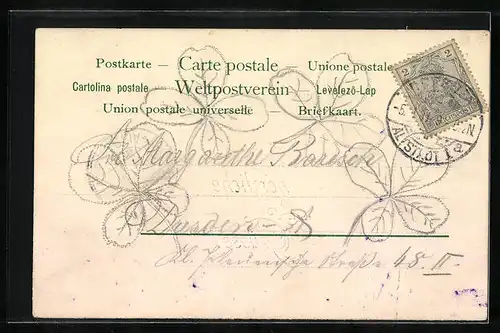 Postkarte – Carte postale – Unione postale
Cartolina postale Weltpostverein – Levelező-Lap
Union postale universelle – Briefkaart.
2 2
ALTSTADT
Margarethe
Dresden-A
Kl. Plauensche Straße 48 II